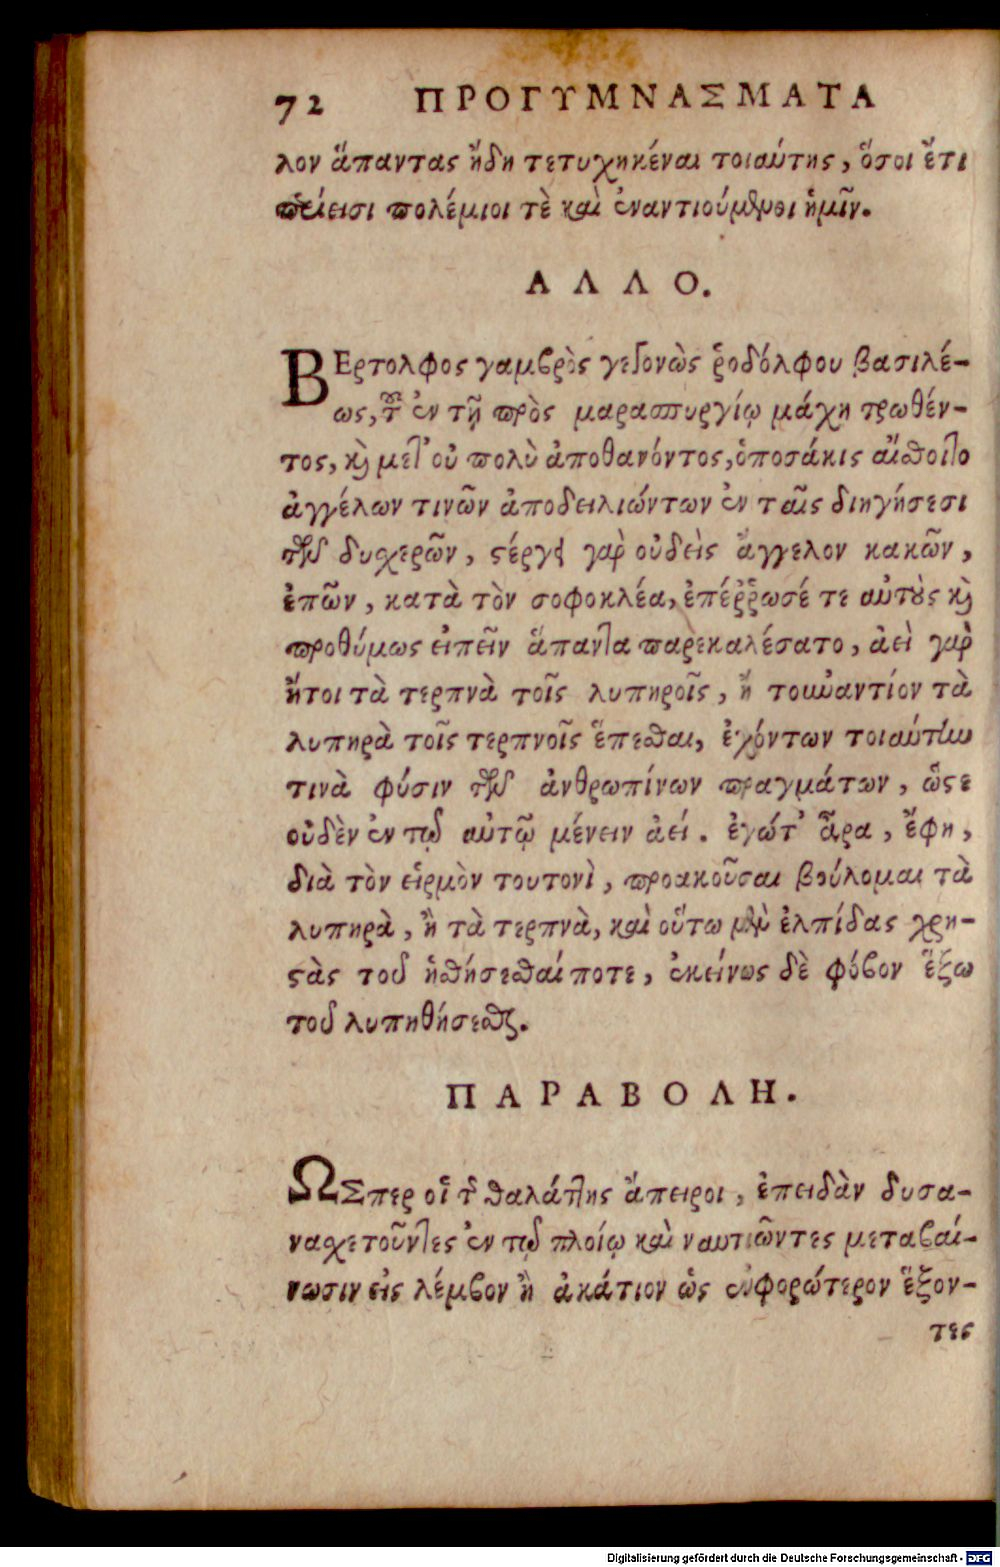 72 ΠΡΟΓΥΜΝΑΣΜΑΤΑ
λον ἅπαντας ἤδη τετυχηκέναι τοιαύτης, ὅσοι ἔτι
πολέμιοι τὲ καὶ ἐναντιούμενοι ἡμῖν.
ΑΛΛΟ.
ΒΕρτολφος γαμβρὸς γεγονὼς ῥοδόλφου βασιλέ-
ως, τοῦ ἐν τῇ πρὸς μαρασπυργίῳ μάχῃ τρωθέν-
τος, καὶ μετ' οὐ πολὺ ἀποθανόντος, ὁποσάκις αἴσθοιτο
ἀγγέλων τινῶν ἀποδειλιώντων ἐν ταῖς διηγήσεσι
τῶν δυσχερῶν, στέργει γὰρ οὐδεὶς ἄγγελον κακῶν,
ἐπῶν, κατὰ τὸν σοφοκλέα, ἐπέῤῥωσέ τε αὐτοὺς καὶ
προθύμως εἰπεῖν ἅπαντα παρεκαλέσατο, ἀεὶ γὰρ
ἤτοι τὰ τερπνὰ τοῖς λυπηροῖς, ἢ τουναντίον τὰ
λυπηρὰ τοῖς τερπνοῖς ἕπεσθαι, ἐχόντων τοιαύτην
τινὰ φύσιν τῶν ἀνθρωπίνων πραγμάτων, ὥστε
οὐδὲν ἐν τῷ αὐτῷ μένειν ἀεί. ἐγώτ' ἆρα, ἔφη,
διὰ τὸν εἱρμὸν τουτονὶ, προακοῦσαι βούλομαι τὰ
λυπηρὰ, ἢ τὰ τερπνὰ, καὶ οὕτω μὲν ἐλπίδας χρη-
στὰς τοῦ ἡσθήσεσθαί ποτε, ἐκείνως δὲ φόβον ἕξω
τοῦ λυπηθήσεσθαι.
ΠΑΡΑΒΟΛΗ.
ΩΣπερ οἱ τῆς θαλάττης ἄπειροι, ἐπειδὰν δυσα-
νασχετοῦντες ἐν τῷ πλοίῳ καὶ ναυτιῶντες μεταβαί-
νωσιν εἰς λέμβον ἢ ἀκάτιον ὡς εὐφορώτερον ἕξον-
τες
Digitalisierung gefördert durch die Deutsche Forschungsgemeinschaft - DFG